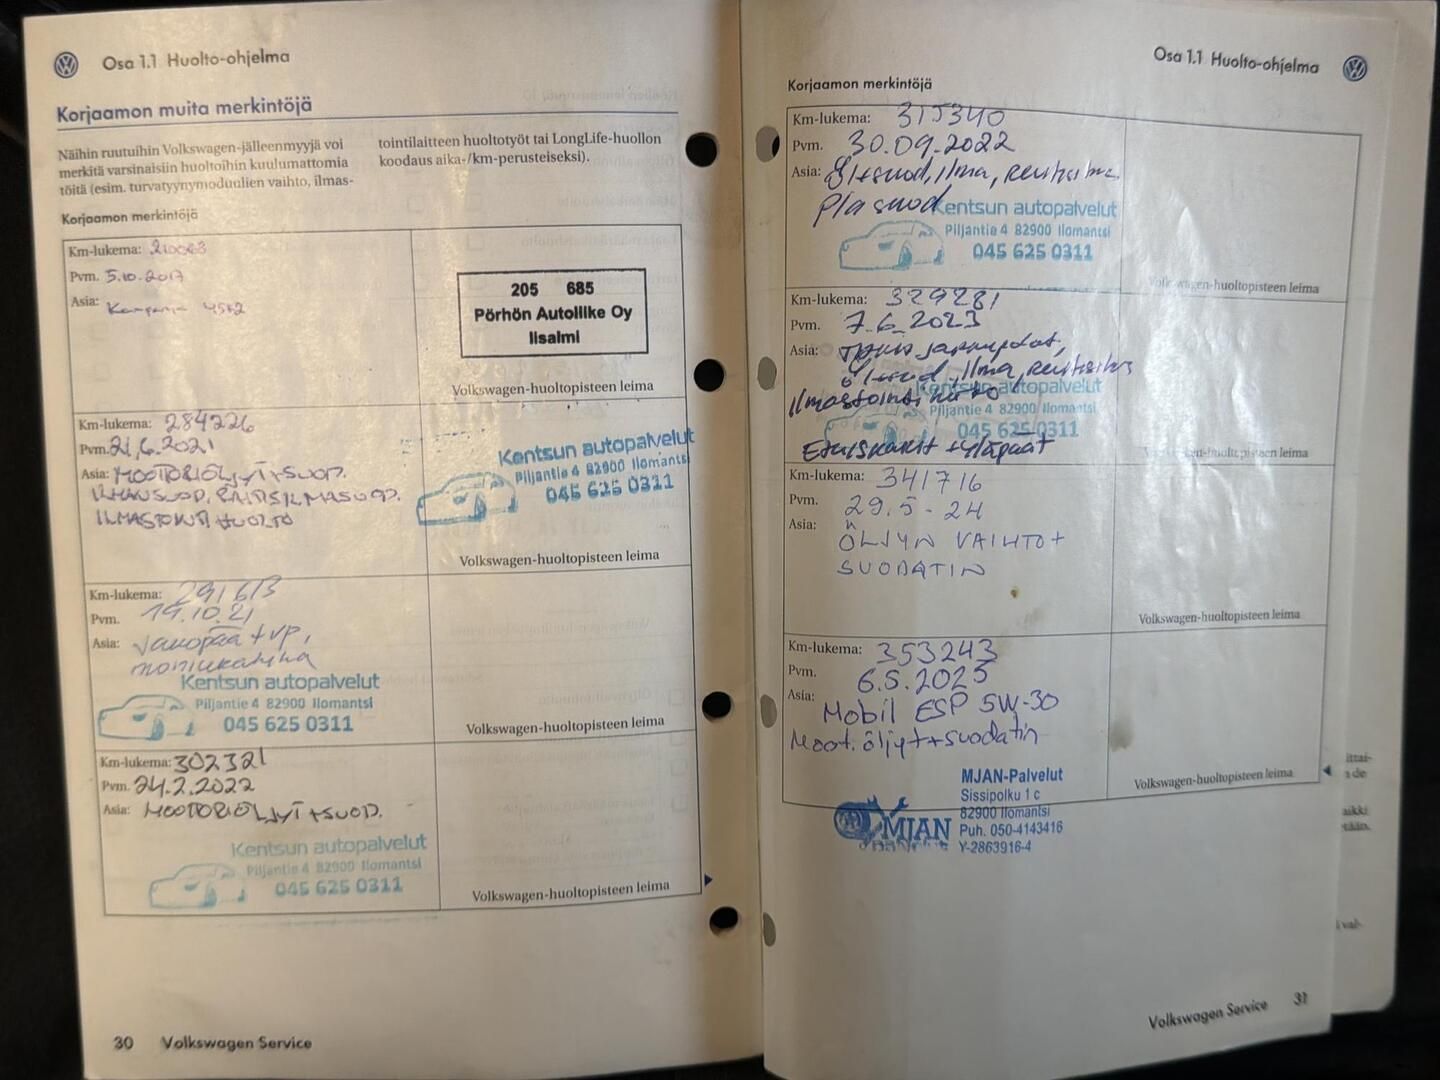 Osa 1.1 Huolto-ohjelma
Korjaamon muita merkintöjä
Näihin ruutuihin Volkswagen-jälleenmyyjä voi
merkitä varsinaisiin huoltoihin kuulumattomia
töitä (esim. turvatyynymoduulien vaihto, ilmas-
tointilaitteen huoltotyöt tai LongLife-huollon
koodaus aika-/km-perusteiseksi).
Korjaamon merkintöjä
Km-lukema:
Pvm. 5.10.2017
Asia:
205 685
Pörhön Autoliike Oy
Iisalmi
Volkswagen-huoltopisteen leima
Km-lukema: 284226
Pvm. 21.6.2021
Asia: MOOTTORIÖLJYT+SUOD.
ILMANSUOD, RAITISILMASUOD.
ILMASTOINTIHUOLTO
Kentsun autopalvelut
Piljantie 4 82900 Ilomantsi
045 625 0311
Volkswagen-huoltopisteen leima
Km-lukema: 291613
Pvm. 19.10.21
Asia: Jakopää + vp,
moniurahihna
Kentsun autopalvelut
Piljantie 4 82900 Ilomantsi
045 625 0311
Volkswagen-huoltopisteen leima
Km-lukema: 302321
Pvm. 24.2.2022
Asia: MOOTTORIÖLJYT+SUOD.
Kentsun autopalvelut
Piljantie 4 82900 Ilomantsi
045 625 0311
Volkswagen-huoltopisteen leima
30 Volkswagen Service
Osa 1.1 Huolto-ohjelma
Korjaamon merkintöjä
Km-lukema: 315340
Pvm. 30.09.2022
Asia: Öl+suod, ilma, raitisilma,
pla suod
Kentsun autopalvelut
Piljantie 4 82900 Ilomantsi
045 625 0311
Volkswagen-huoltopisteen leima
Km-lukema: 329281
Pvm. 7.6.2023
Asia: jarrupalat,
öl+suod, ilma, raitisilma
Ilmastointihuolto
Kentsun autopalvelut
Piljantie 4 82900 Ilomantsi
045 625 0311
Etuiskarit + yläpäät
Volkswagen-huoltopisteen leima
Km-lukema: 341716
Pvm. 29.5-24
Asia:
ÖLJYN VAIHTO+
SUODATIN
Volkswagen-huoltopisteen leima
Km-lukema: 353243
Pvm. 6.5.2025
Asia:
Mobil ESP 5W-30
Moot. öljyt+suodatin
Volkswagen-huoltopisteen leima
MJAN
MJAN-Palvelut
Sissipolku 1 c
82900 Ilomantsi
Puh. 050-4143416
Y-2863916-4
Volkswagen Service 31